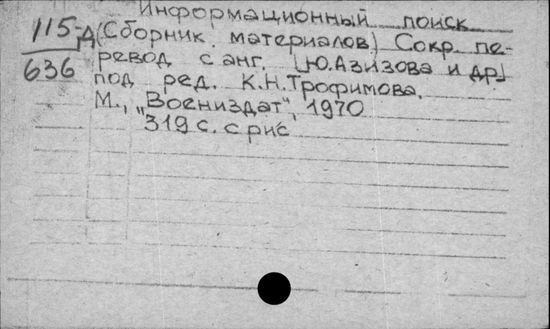 Информационный поиск
115-Д (Сборник материалов) Сокр. пе-
636 ревод с анг. [Ю.Азизова и др.]
под ред. К.Н.Трофимова.
М., „Воениздат", 1970
319 с. с рис